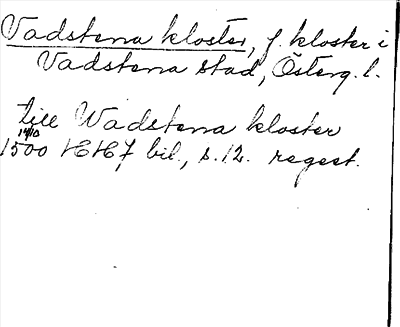 Vadstena kloster, f. kloster i
Vadstena stad, Österg. l.
till Wadstena kloster
14/10
1500 HH7 bil., s. 12. regest.